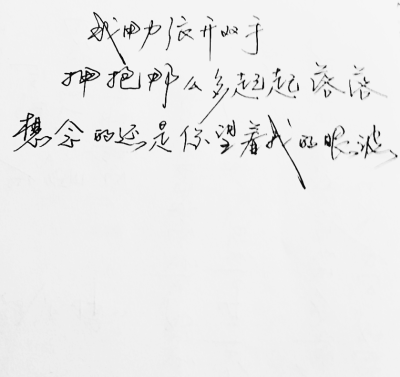 我用力张开双手
拥抱那么多起起落落
想念的还是你望着我的眼波